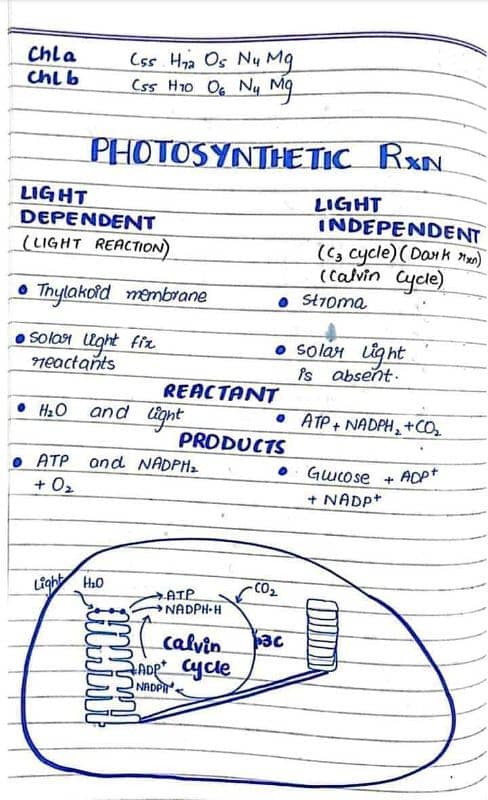 Chl a C₅₅ H₇₂ O₅ N₄ Mg
Chl b C₅₅ H₇₀ O₆ N₄ Mg
PHOTOSYNTHETIC RXN
LIGHT DEPENDENT
(LIGHT REACTION)
LIGHT INDEPENDENT
(C₃ cycle) (Dark rxn)
(Calvin Cycle)
• Thylakoid membrane
• Stroma
• Solar light fix
reactants
• Solar light
is absent.
REACTANT
• H₂O and light
• ATP + NADPH₂ + CO₂
PRODUCTS
• ATP and NADPH₂
+ O₂
• Glucose + ADP⁺
+ NADP⁺
Light H₂O
ATP
NADPH·H
CO₂
Calvin
cycle
3C
ADP⁺